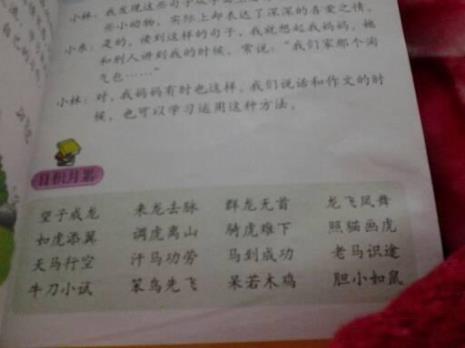 小林：我发现这些句子
些小动物，实际上却表达了深深的喜爱之情。
小东：是的，读到这样的句子，我就想起我妈妈，她
和别人讲到我的时候，常说：“我们家那个淘
气包……”
小林：对，我妈妈有时也这样。我们说话和作文的时
候，也可以学习运用这种方法。
日积月累
望子成龙 来龙去脉 群龙无首 龙飞凤舞
如虎添翼 调虎离山 骑虎难下 照猫画虎
天马行空 汗马功劳 马到成功 老马识途
牛刀小试 笨鸟先飞 呆若木鸡 胆小如鼠